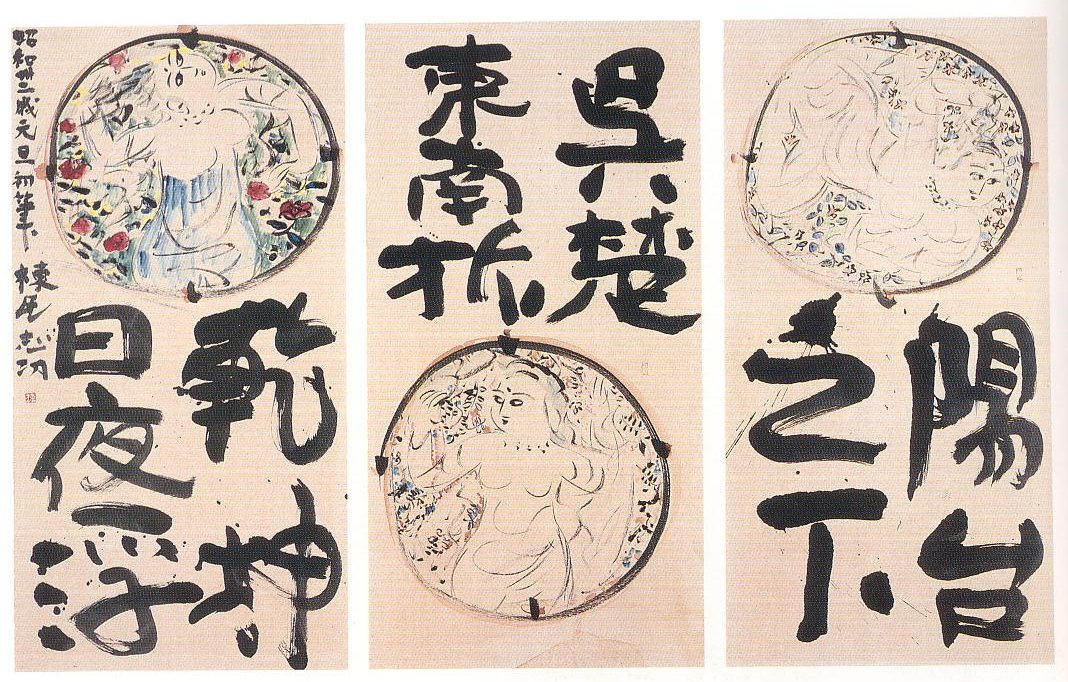 陽台
之下
呉楚
東南坼
乾坤
日夜浮
昭和卅三戌元旦初筆下 棟方志功